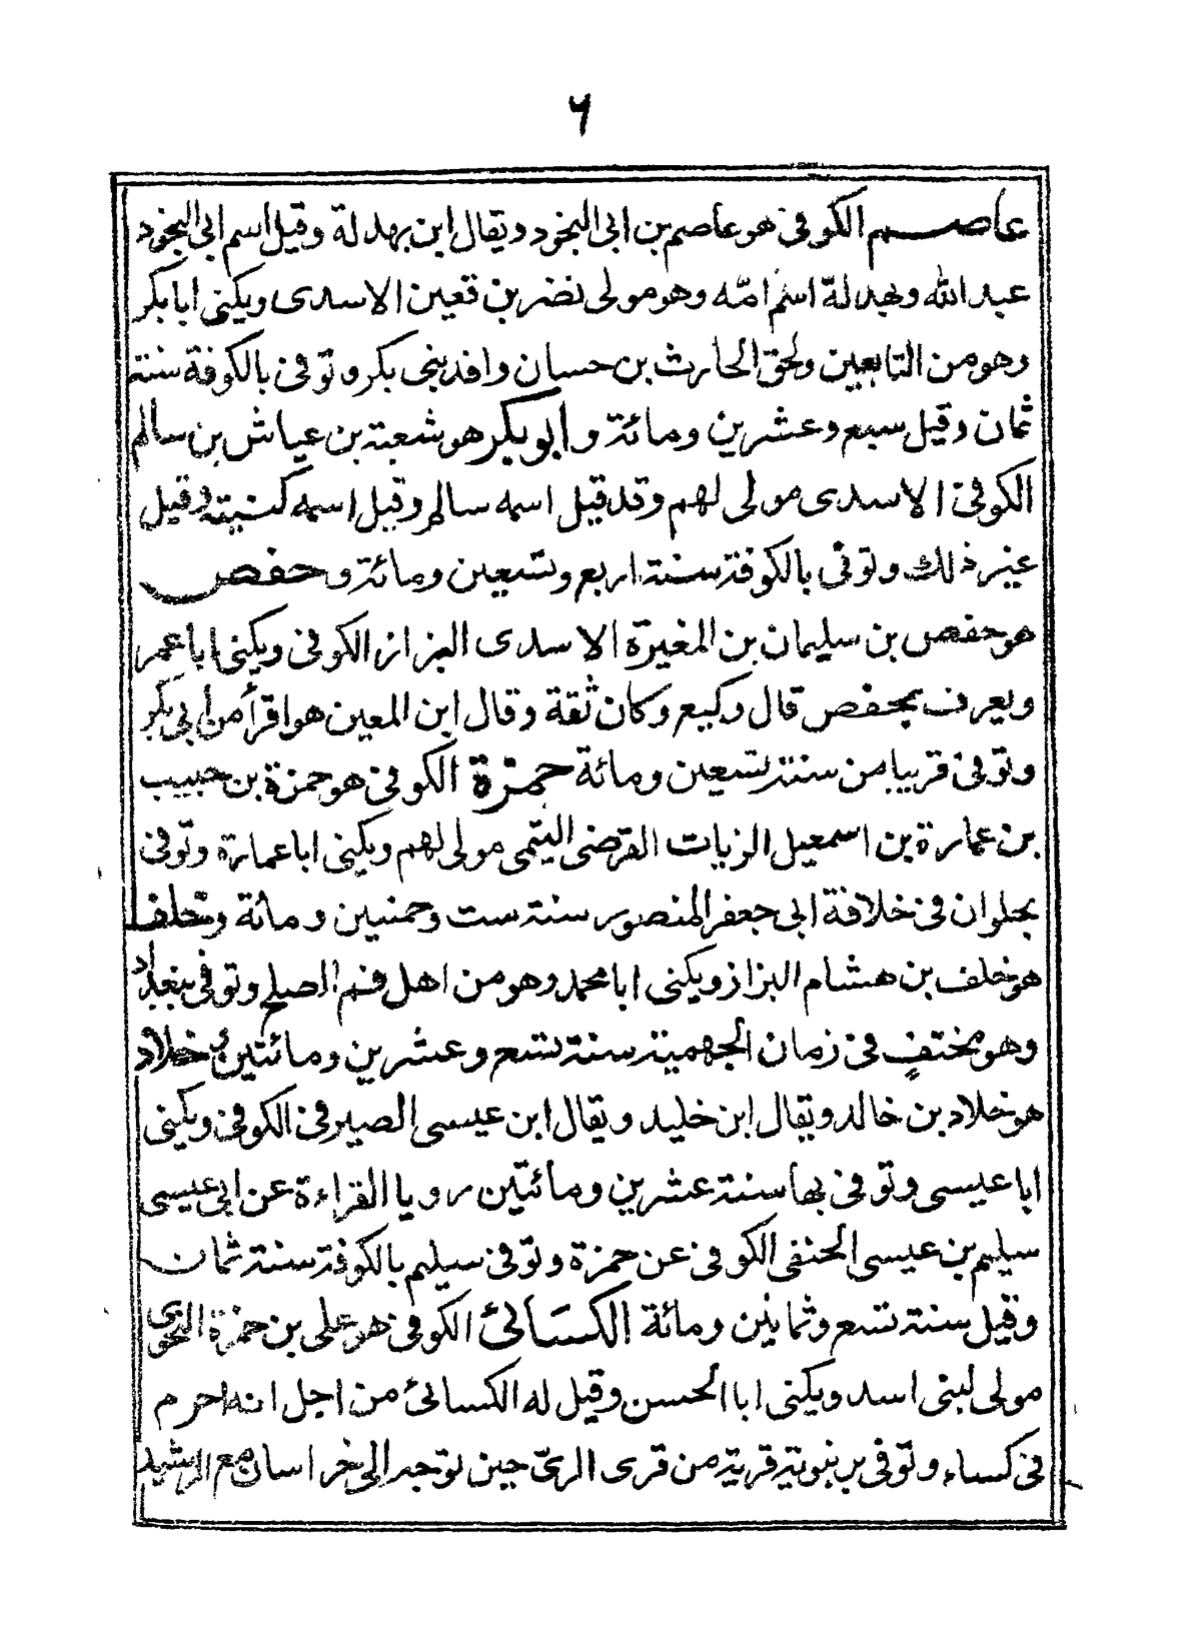 ٦
عاصم الكوفى هو عاصم بن ابى النجود ويقال ابن بهدلة وقيل اسم ابى النجود
عبد الله وبهدلة اسم امّه وهو مولى نضر بن قعين الاسدى ويكنى ابا بكر
وهو من التابعين ولحق الحارث بن حسان وافد بنى بكر وتوفى بالكوفة سنة
ثمان وقيل سبع وعشرين ومائة وابو بكر هو شعبة بن عياش بن سالم
الكوفى الاسدى مولى لهم وقد قيل اسمه سالم وقيل اسمه كنيته وقيل
غير ذلك وتوفى بالكوفة سنة اربع وتسعين ومائة وحفص
هو حفص بن سليمان بن المغيرة الاسدى البزاز الكوفى ويكنى ابا عمر
ويعرف بحفص قال وكيع وكان ثقة وقال ابن المعين هو اقرأ من ابى بكر
وتوفى قريبا من سنة تسعين ومائة حمزة الكوفى هو حمزة بن حبيب
بن عمارة بن اسمعيل الزيات الفرضى التيمى مولى لهم ويكنى ابا عمارة وتوفى
بحلوان فى خلافة ابى جعفر المنصور سنة ست وخمسين ومائة وخلف
هو خلف بن هشام البزاز ويكنى ابا محمد وهو من اهل فم الصلح وتوفى ببغداد
وهو مختفٍ فى زمان الجهمية سنة تسع وعشرين ومائتين وخلاد
هو خلاد بن خالد ويقال ابن خليد ويقال ابن عيسى الصيرفى الكوفى ويكنى
ابا عيسى وتوفى بها سنة عشرين ومائتين رويا القراءة عن ابى عيسى
سليم بن عيسى الحنفى الكوفى عن حمزة وتوفى سليم بالكوفة سنة ثمان
وقيل سنة تسع وثمانين ومائة الكسَائى الكوفى هو على بن حمزة النحوى
مولى لبنى اسد ويكنى ابا الحسن وقيل له الكسائى من اجل انه احرم
فى كساء وتوفى برنبوية قرية من قرى الرىّ حين توجه الى خراسان مع الرشيد